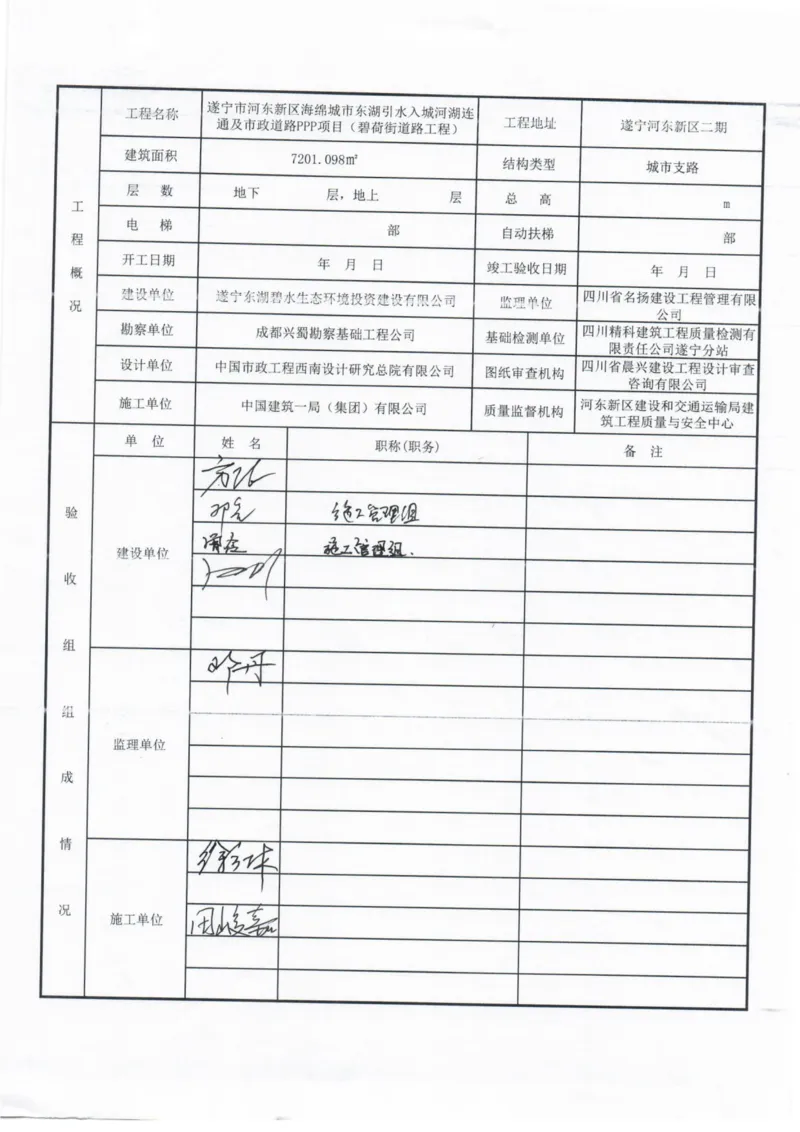 工程概况
工程名称
遂宁市河东新区海绵城市东湖引水入城河湖连
通及市政道路PPP项目（碧荷街道路工程）
工程地址
遂宁河东新区二期
建筑面积
7201.098㎡
结构类型
城市支路
层 数
地下 层，地上 层
总 高
m
电 梯
部
自动扶梯
部
开工日期
年 月 日
竣工验收日期
年 月 日
建设单位
遂宁东湖碧水生态环境投资建设有限公司
监理单位
四川省名扬建设工程管理有限
公司
勘察单位
成都兴蜀勘察基础工程公司
基础检测单位
四川精科建筑工程质量检测有
限责任公司遂宁分站
设计单位
中国市政工程西南设计研究总院有限公司
图纸审查机构
四川省晨兴建设工程设计审查
咨询有限公司
施工单位
中国建筑一局（集团）有限公司
质量监督机构
河东新区建设和交通运输局建
筑工程质量与安全中心
验收组组成情况
单 位
姓 名
职称(职务)
备 注
建设单位
施工管理组
施工管理组.
监理单位
施工单位